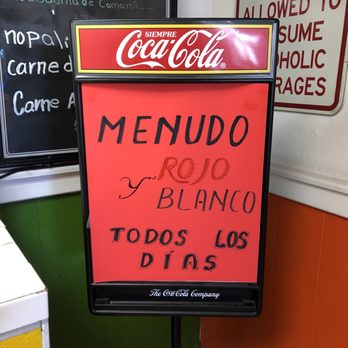 nopali
Carne d
Carne A
SIEMPRE
Coca-Cola
MENUDO
ROJO
y BLANCO
TODOS LOS
DÍAS
The Coca-Cola Company
ALLOWED TO
SUME
OHOLIC
RAGES